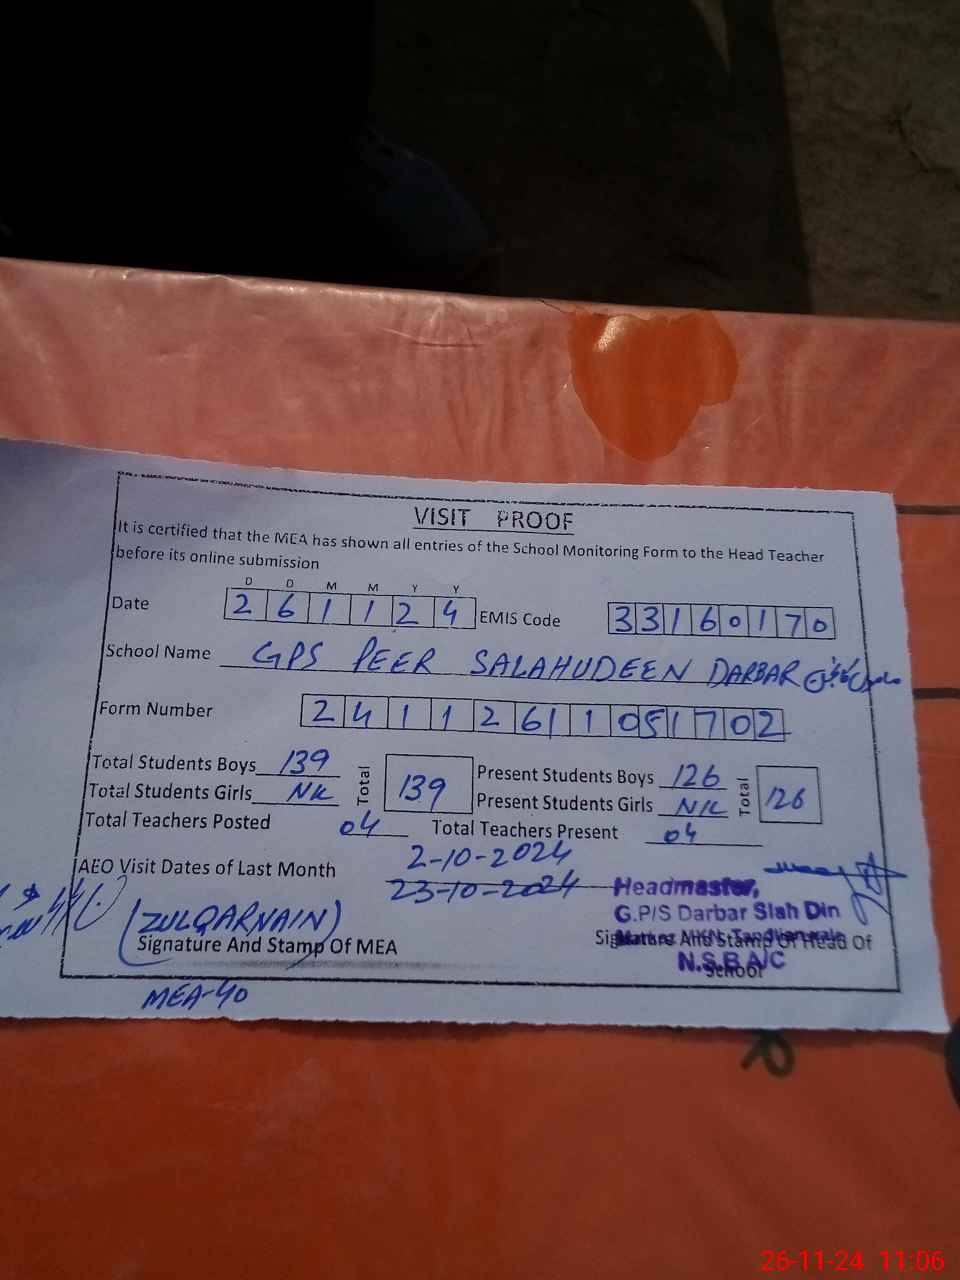 VISIT PROOF
It is certified that the MEA has shown all entries of the School Monitoring Form to the Head Teacher
before its online submission
D D M M Y Y
Date 2 6 1 1 2 4 EMIS Code 3 3 1 6 0 1 7 0
School Name GPS PEER SALAHUDEEN DARBAR
Form Number 2 4 1 1 2 6 1 1 0 5 1 7 0 2
Total Students Boys 139 Total 139 Present Students Boys 126 Total 126
Total Students Girls NIL Present Students Girls NIL
Total Teachers Posted 04 Total Teachers Present 04
AEO Visit Dates of Last Month 2-10-2024
23-10-2024
Headmaster,
G.P/S Darbar Slah Din
(ZULQARNAIN)
Signature And Stamp Of MEA Signature And Stamp Of Head Of
School
N.S.B A/C
MEA-40
26-11-24 11:06